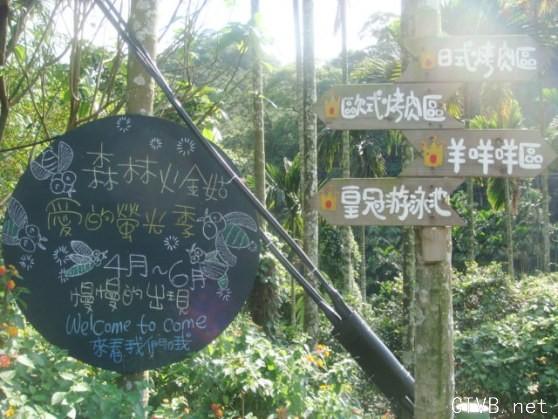 森林火金姑
愛的螢光季
4月~6月
慢慢的出現
Welcome to come
來看我們的我
日式烤肉區
歐式烤肉區
羊咩咩區
皇冠游泳池
GTVB.net